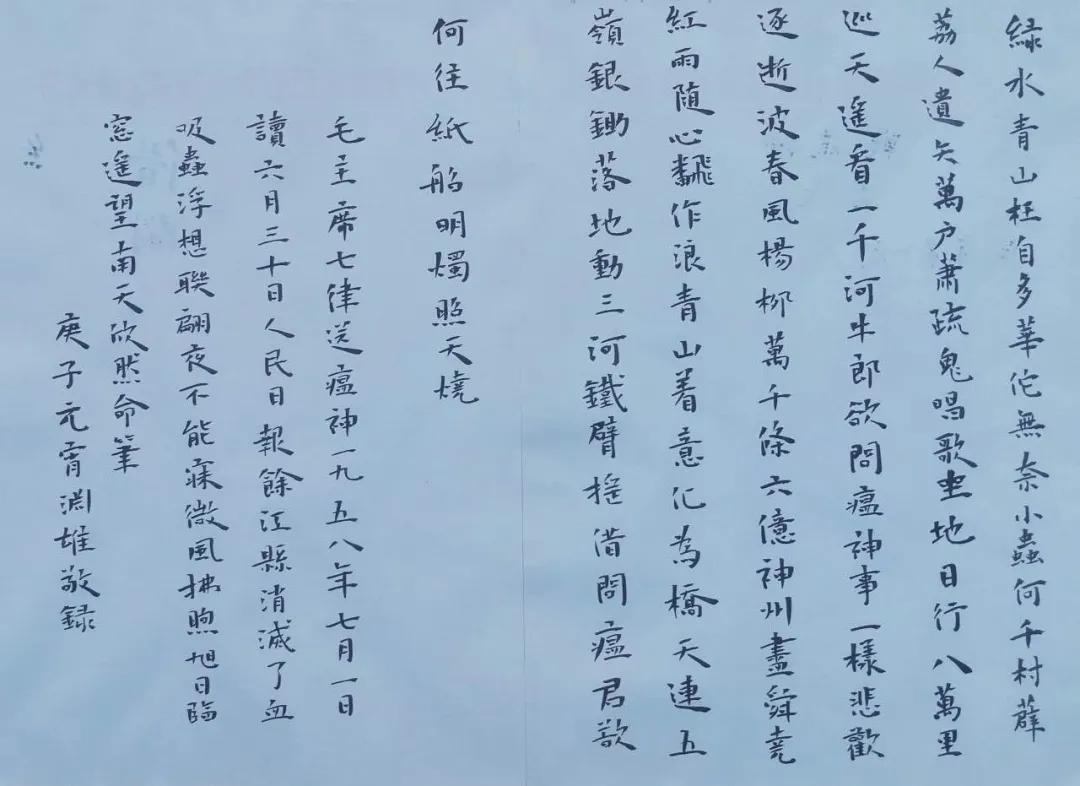 緑水青山枉自多華佗無奈小蟲何千村薜
荔人遺矢萬户蕭疏鬼唱歌坐地日行八萬里
巡天遥看一千河牛郎欲問瘟神事一樣悲歡
逐逝波春風楊柳萬千條六億神州盡舜堯
紅雨随心飜作浪青山着意化為橋天連五
嶺銀鋤落地動三河鐵臂揺借問瘟君欲
何往紙船明燭照天燒
毛主席七律送瘟神一九五八年七月一日
讀六月三十日人民日報餘江縣消滅了血
吸蟲浮想聯翩夜不能寐微風拂煦旭日臨
窓遥望南天欣然命筆
庚子元宵淵雄敬録